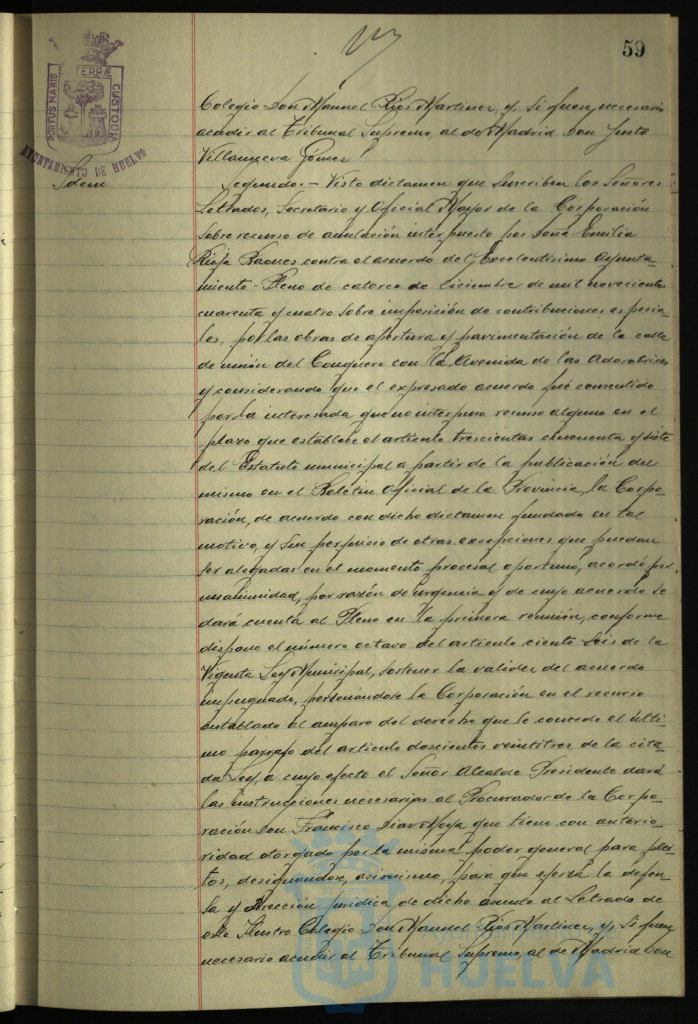 59
PORTUS MARIS
TERRÆ
CUSTODIA
AYUNTAMIENTO DE HUELVA
Idem
Colegio Don Manuel Rios Martinez, y, si fuese necesario
acudir al Tribunal Supremo, al de Madrid Don Justo
Villanueva Gomez
Segundo.- Visto dictamen que suscriben los Señores
Letrados, Secretario y Oficial Mayor de la Corporación
sobre recurso de anulación interpuesto por Doña Emilia
contra el acuerdo del Excelentisimo Ayunta-
miento-Pleno de catorce de Diciembre de mil novecientos
cuarenta y cuatro sobre imposición de contribuciones especia-
les, por las obras de apertura y pavimentación de la calle
de unión del Conquero con la Avenida de las Adoratrices
y considerando que el expresado acuerdo fué consentido
por la interesada que no interpuso recurso alguno en el
plazo que establece el articulo trescientos cincuenta y siete
del Estatuto municipal a partir de la publicación del
mismo en el Boletin Oficial de la Provincia, la Corpo-
ración, de acuerdo con dicho dictamen fundado en tal
motivo, y sin perjuicio de otras excepciones que puedan
ser alegadas en el momento procesal oportuno, acordó por
unanimidad, por razón de urgencia y de cuyo acuerdo se
dará cuenta al Pleno en la primera reunión, conforme
dispone el número octavo del articulo ciento seis de la
Vigente Ley Municipal, sostener la validez del acuerdo
impugnado, personándose la Corporación en el recurso
entablado al amparo del derecho que le concede el últi-
mo parrafo del articulo doscientos veintitres de la cita-
da Ley, a cuyo efecto el Señor Alcalde Presidente dará
las instrucciones necesarias al Procurador de la Corpo-
ración Don Francisco Diaz Moya que tiene con anterio-
ridad otorgado por la misma poder general para plei-
tos, designandose, asimismo, para que ejerza la defen-
sa y dirección juridica de dicho asunto al Letrado de
este Ilustre Colegio Don Manuel Rios Martinez, y, si fuese
necesario acudir al Tribunal Supremo, al de Madrid Don
HUELVA